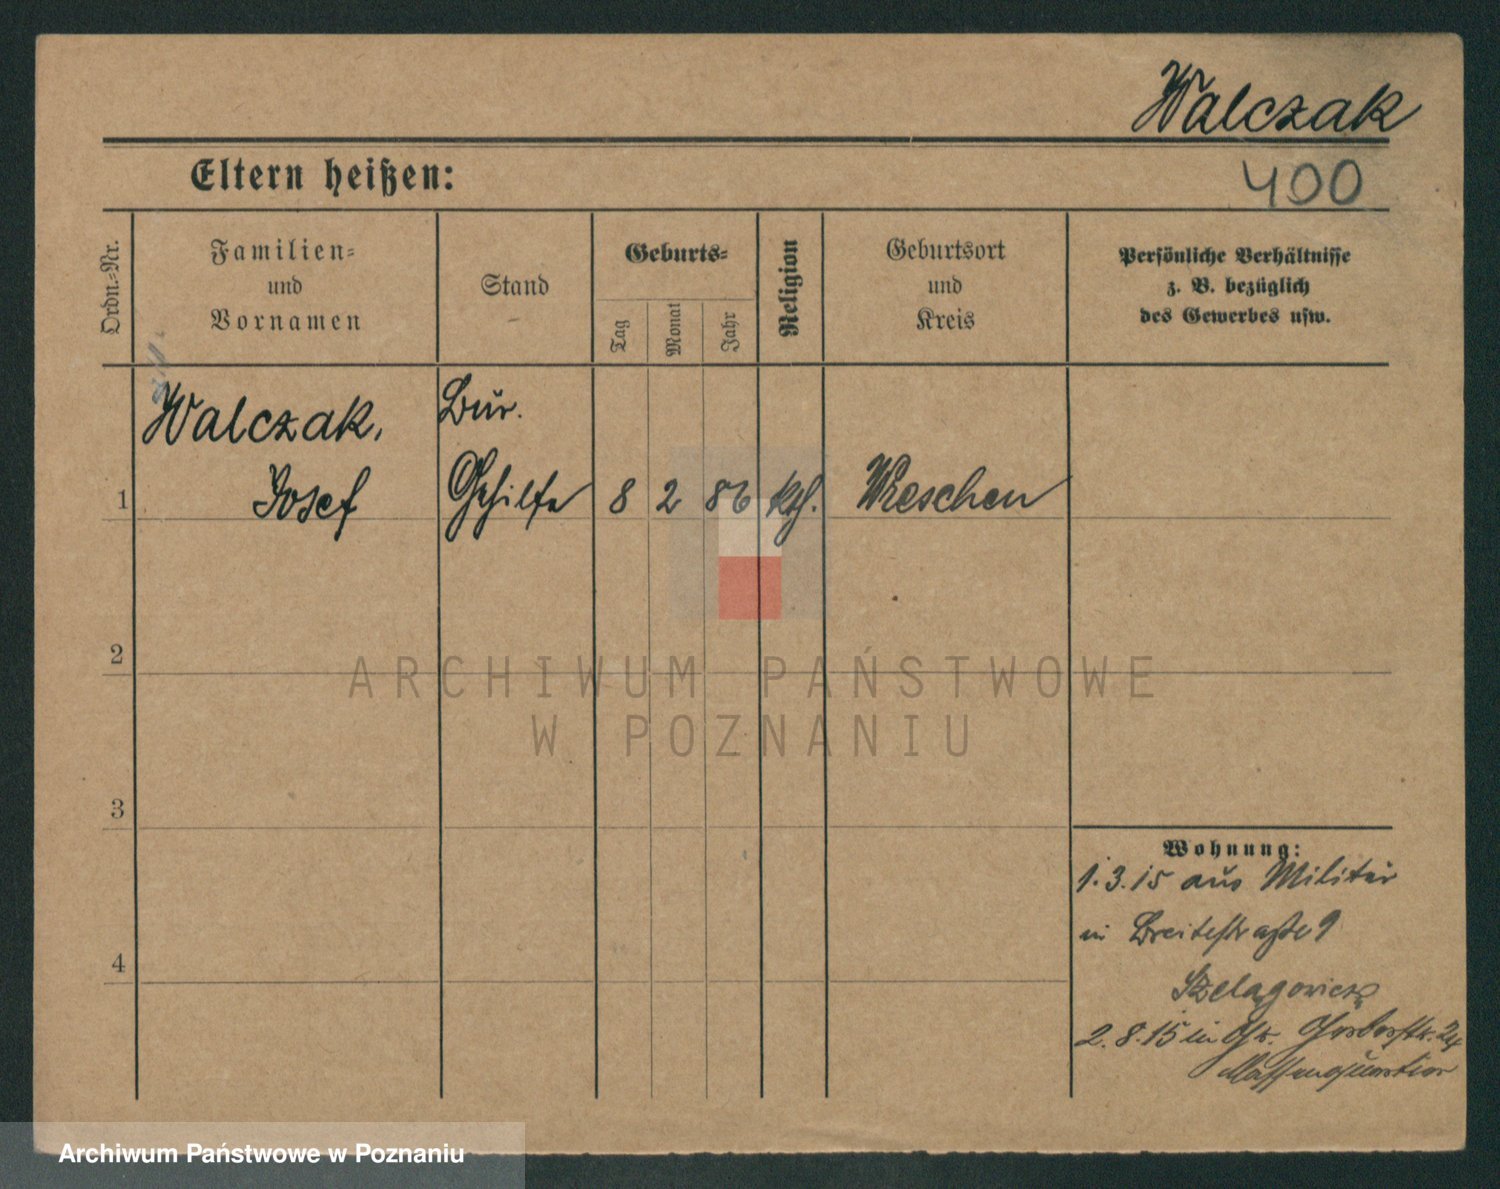 Walczak
Eltern heißen:
400
Ordn.=Nr.
Familien=
und
Vornamen
Stand
Geburts=
Tag
Monat
Jahr
Religion
Geburtsort
und
Kreis
Persönliche Verhältnisse
z. B. bezüglich
des Gewerbes usw.
Walczak,
Bür.
1
Josef
Gehilfe
8
2
86
kth.
Wreschen
2
ARCHIWUM PAŃSTWOWE
W POZNANIU
3
Wohnung:
1.3.15 aus Militär
in Breitestraße 9
4
Szelągowicz
2.8.15 in Gr. Gerberstr. 24
Massenquartier
Archiwum Państwowe w Poznaniu